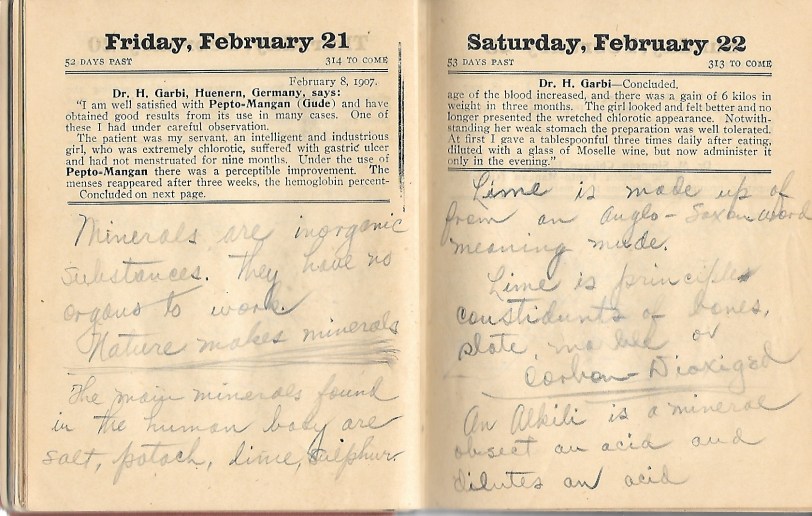 Friday, February 21
52 DAYS PAST 314 TO COME
February 8, 1907.
Dr. H. Garbi, Huenern, Germany, says:
"I am well satisfied with Pepto-Mangan (Gude) and have
obtained good results from its use in many cases. One of
these I had under careful observation.
The patient was my servant, an intelligent and industrious
girl, who was extremely chlorotic, suffered with gastric ulcer
and had not menstruated for nine months. Under the use of
Pepto-Mangan there was a perceptible improvement. The
menses reappeared after three weeks, the hemoglobin percent-
Concluded on next page.
Minerals are inorganic
substances. They have no
organs to work.
Nature makes minerals
The main minerals found
in the human body are
salt, potach, lime, sulphur.
Saturday, February 22
53 DAYS PAST 313 TO COME
Dr. H. Garbi—Concluded.
age of the blood increased, and there was a gain of 6 kilos in
weight in three months. The girl looked and felt better and no
longer presented the wretched chlorotic appearance. Notwith-
standing her weak stomach the preparation was well tolerated.
At first I gave a tablespoonful three times daily after eating,
diluted with a glass of Moselle wine, but now administer it
only in the evening."
Lime is made up of
from an Anglo-Saxon word
meaning mude.
Lime is principle
constidunts of bones,
slate, or
Carbon-Dioxiged
An Alkili is a mineral
obsect an acid and
dilutes an acid